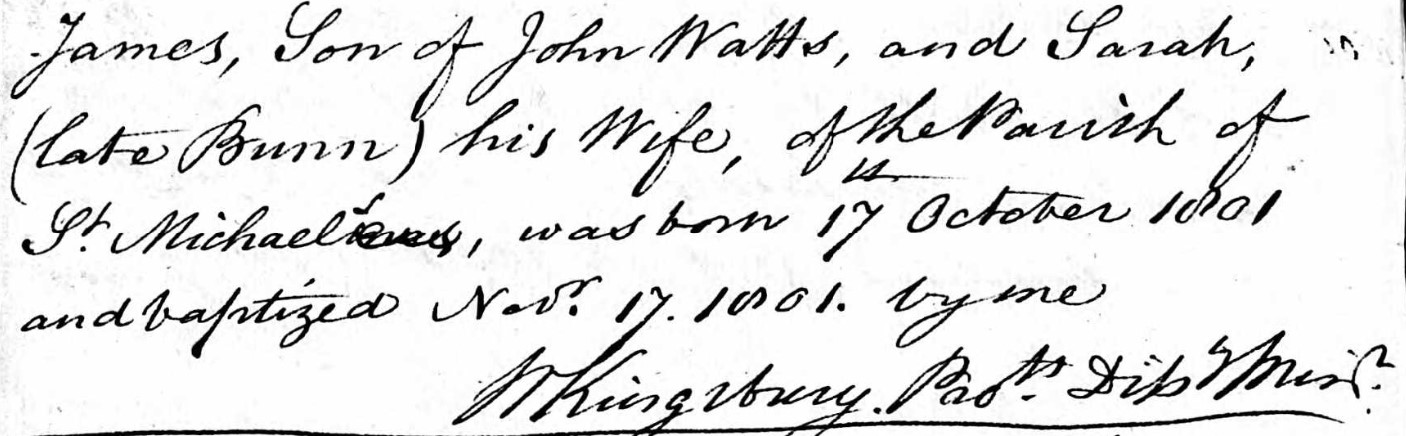 James, Son of John Watts, and Sarah,
(late Bunn) his Wife, of the Parish of
St. Michael's, was born 17th October 1801
and baptized Novr. 17. 1801. by me
W Kingsbury. Prott. Disst. Minr.